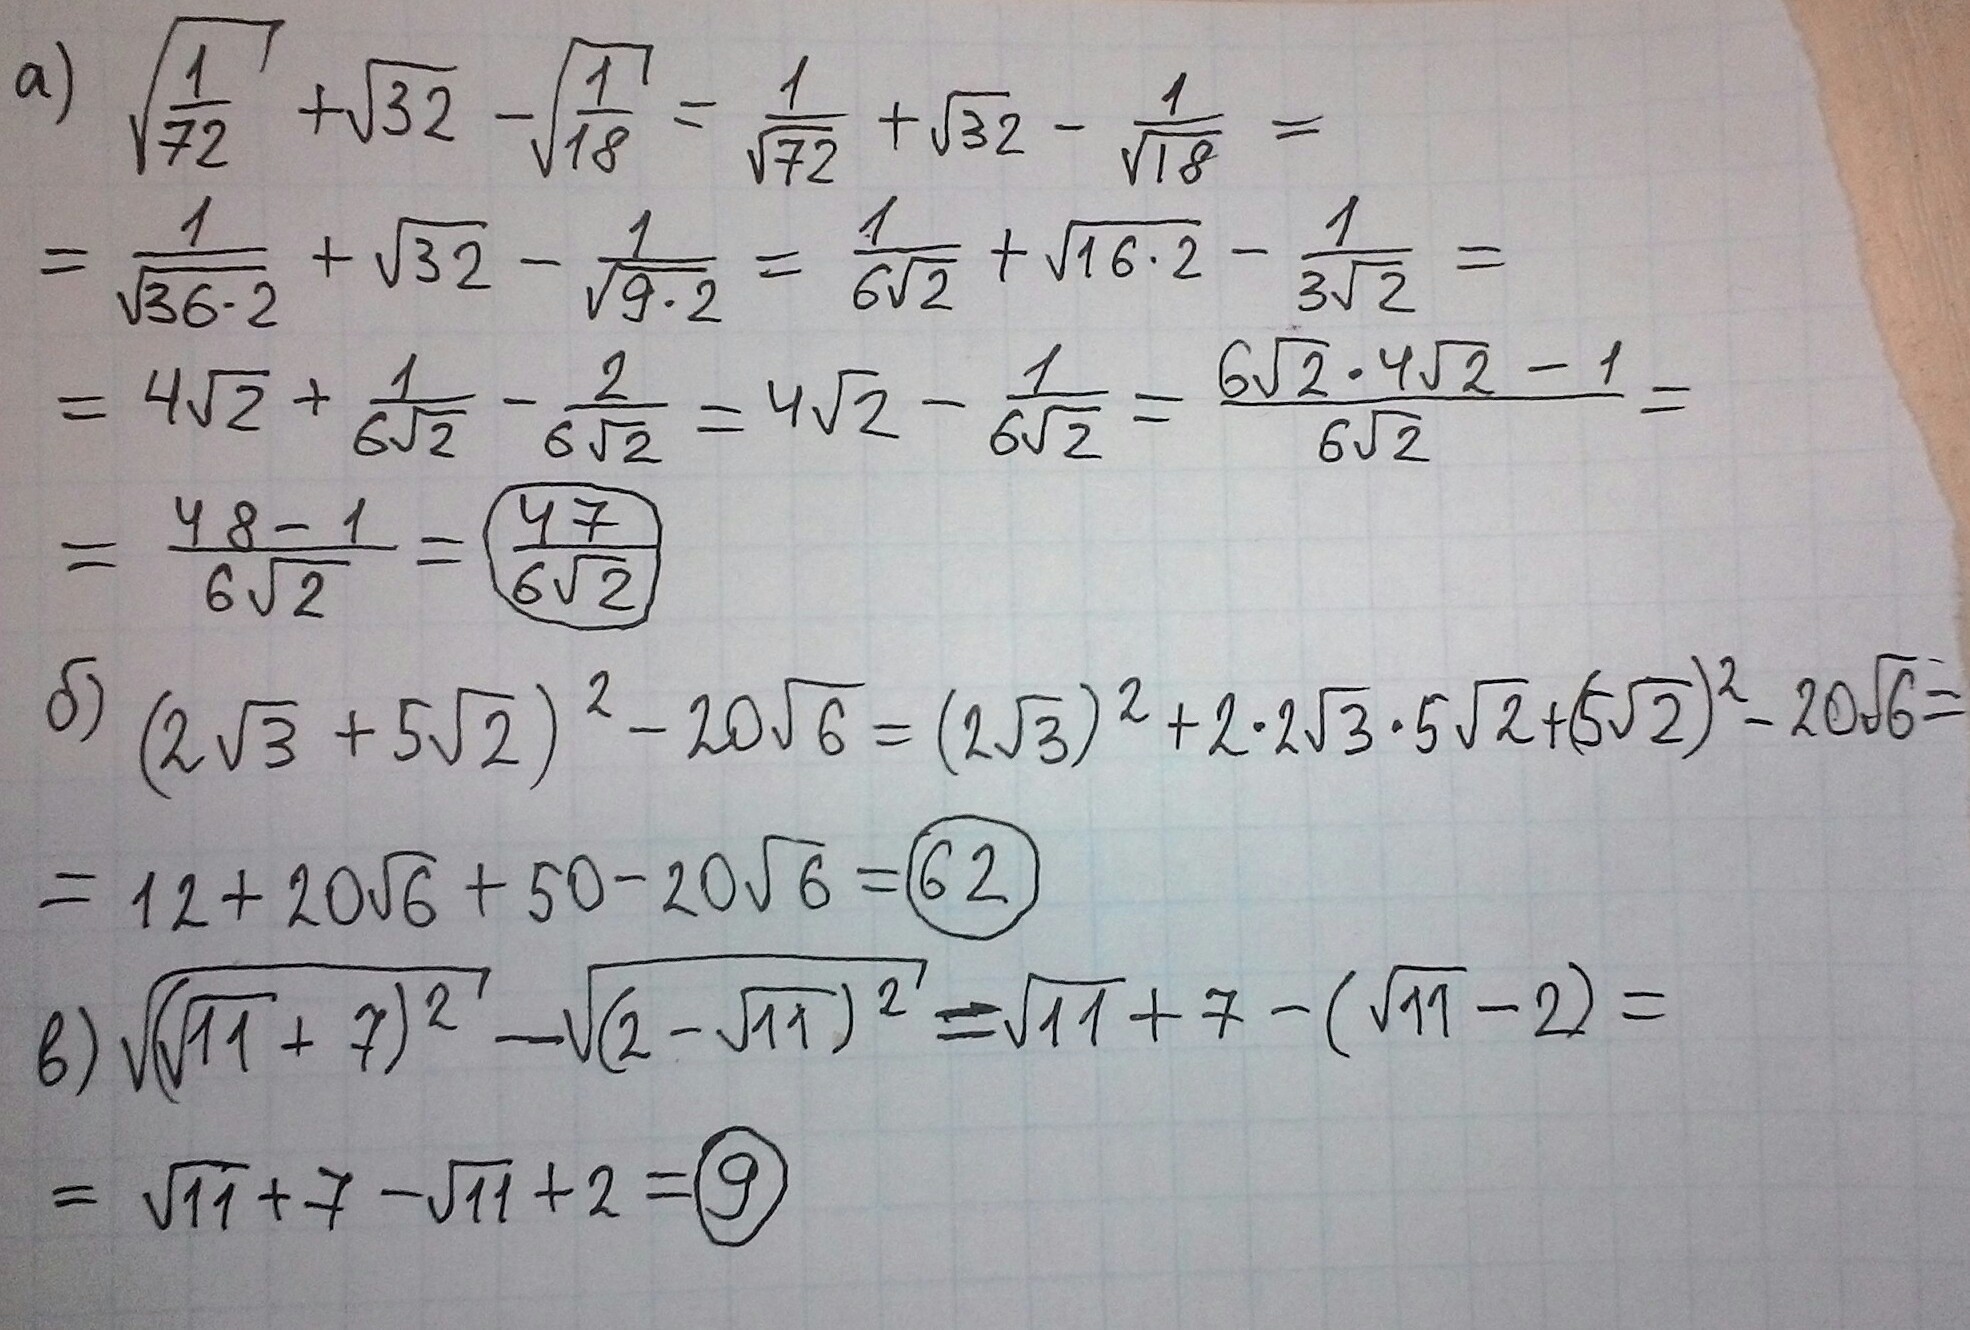 а) √(1/72) + √32 − √(1/18) = 1/√72 + √32 − 1/√18 =
= 1/√(36·2) + √32 − 1/√(9·2) = 1/(6√2) + √(16·2) − 1/(3√2) =
= 4√2 + 1/(6√2) − 2/(6√2) = 4√2 − 1/(6√2) = (6√2·4√2 − 1)/(6√2) =
= (48−1)/(6√2) = 47/(6√2)
б) (2√3 + 5√2)² − 20√6 = (2√3)² + 2·2√3·5√2 + (5√2)² − 20√6 =
= 12 + 20√6 + 50 − 20√6 = 62
в) √((√11 + 7)²) − √((2 − √11)²) = √11 + 7 − (√11 − 2) =
= √11 + 7 − √11 + 2 = 9